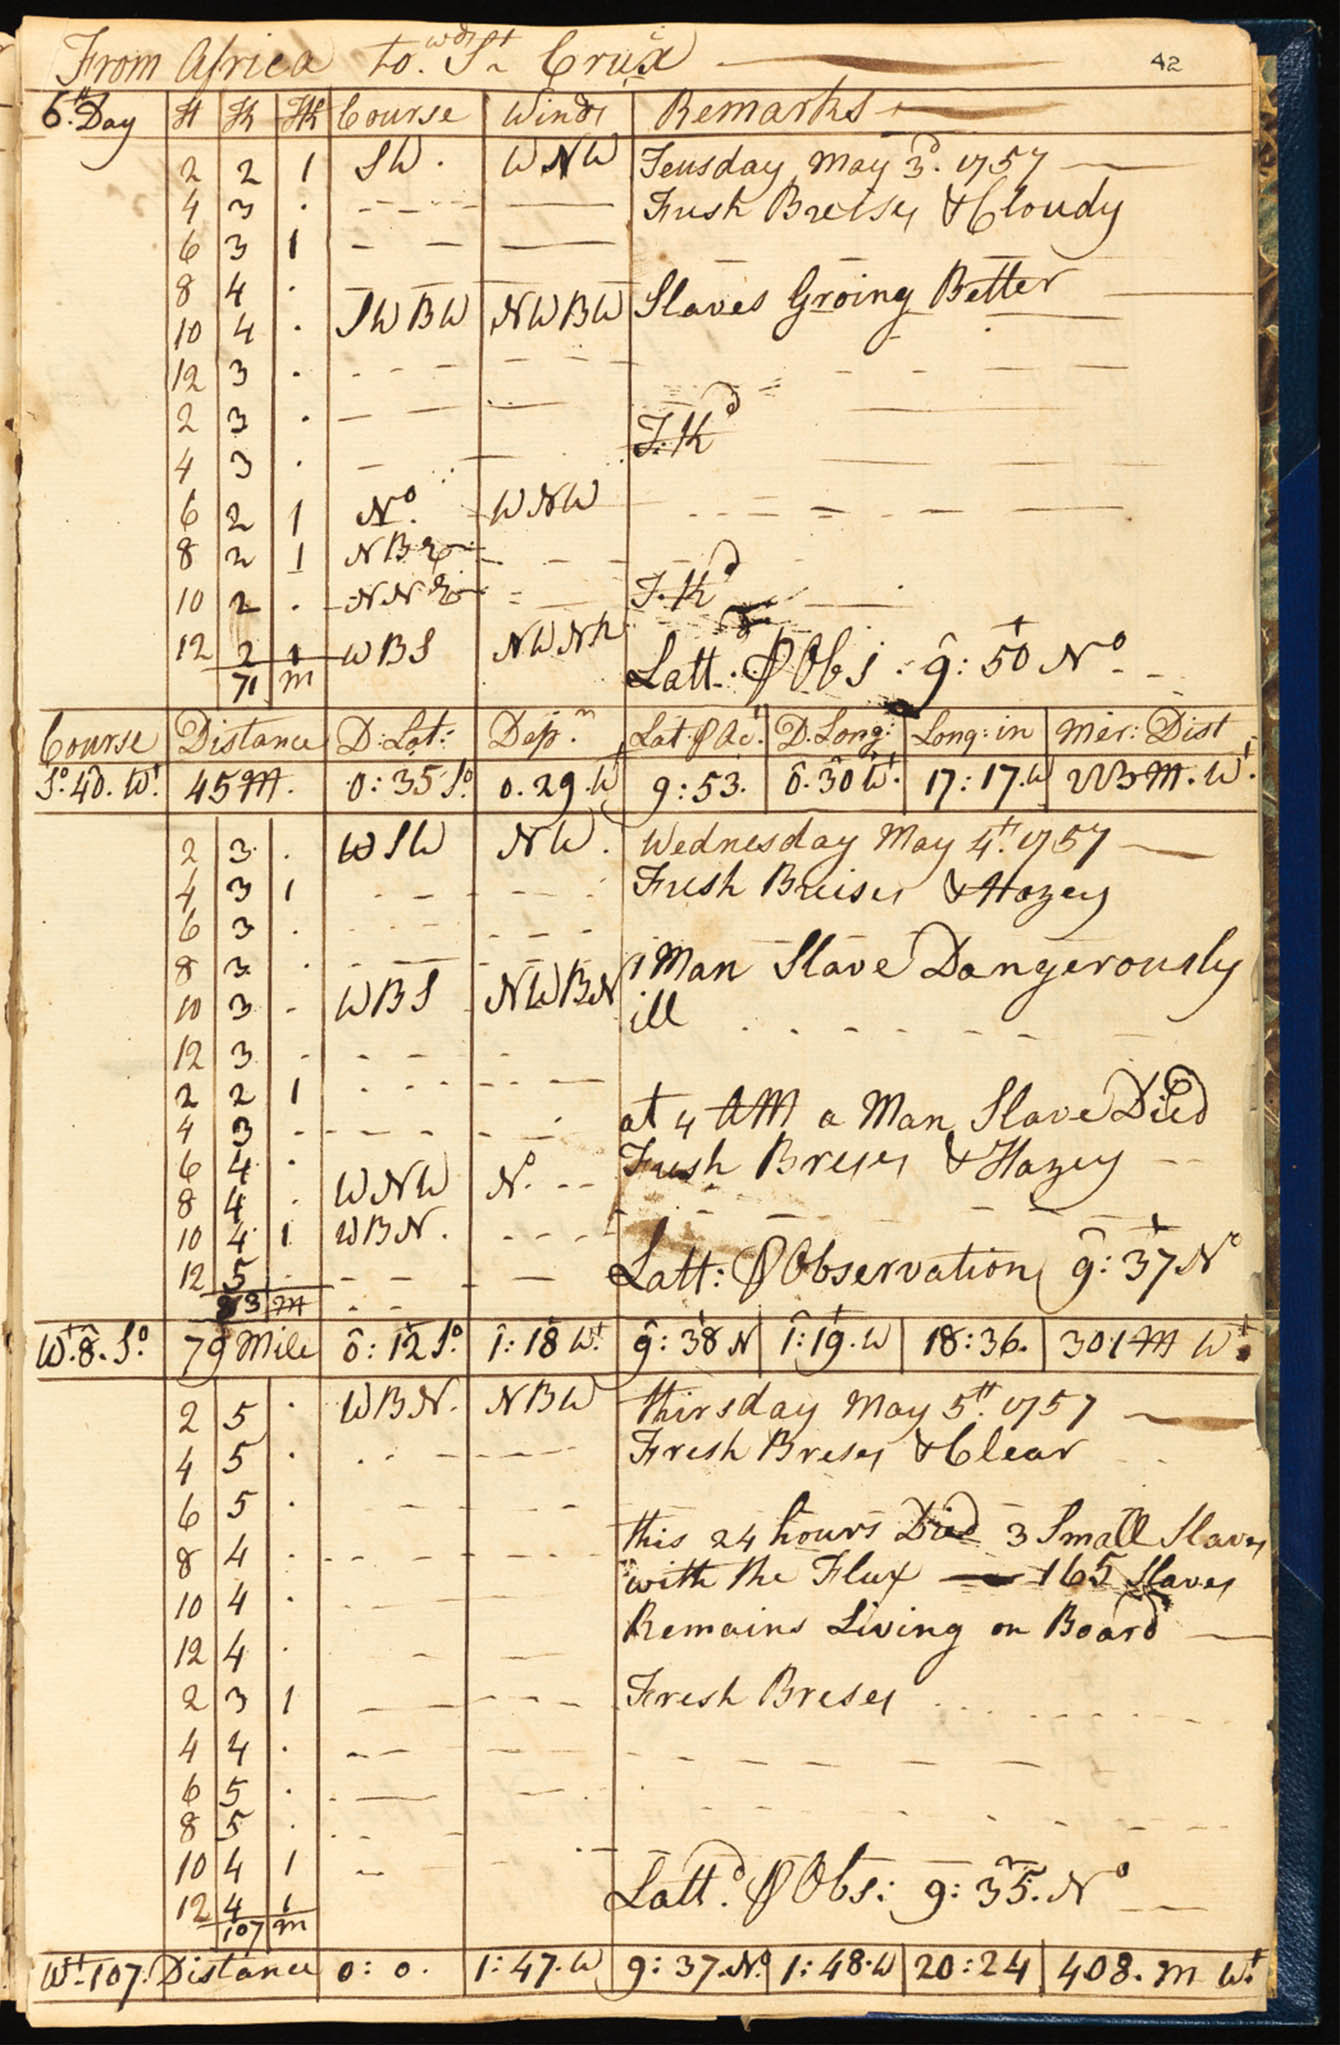 From Africa to.wds St Crux
42
6th Day H K HK Course Winds Remarks
2 2 1 SW. WNW Teusday May 3d. 1757
4 3 . Fresh Breises & Cloudy
6 3 1
8 4 .
10 4 . SWBW NWBW Slaves Groing Better
12 3 .
2 3 . T.Kd
4 3 .
6 2 1 No. WNW
8 2 1 NBE
10 2 . NNE T.Kd
12 2 1 WBS NWN
71 m Lattd. ꝑ Obs. 9:50 No
Course Distance D:Lat: Depn. Lat ꝑ Ac:t D.Long: Long:in Mer: Dist
So.40.Wt. 45M. 0:35 So. 0.29.Wt 9:53. 0.30Wt. 17:17.W 223M.Wt.
2 3 . WSW NW. Wednesday May 4th. 1757
4 3 1 Fresh Breises & Hazey
6 3 .
8 3 . 1 Man Slave Dangerously
10 3 . WBS NWBN ill
12 3 .
2 2 1 at 4 AM a Man Slave Died
4 3 .
6 4 . Fresh Breses & Hazey
8 4 . WNW No.
10 4 1 WBN.
12 5 . Latt: ꝑ Observation 9:37 No
83 M
Wt.8.So. 79 Mile 0:12 So. 1:18 Wt. 9:38 N 1:19.W 18:36. 301M Wt.
2 5 . WBN. NBW thirsday May 5th. 1757
4 5 . Fresh Breses & Clear
6 5 .
this 24 hours Died 3 Small Slaves
8 4 . with the Flux 165 Slaves
10 4 . Remains Living on Board
12 4 .
2 3 1 Fresh Breses
4 4 .
6 5 .
8 5 .
10 4 1
12 4 1 Lattd. ꝑ Obs: 9:35.No
107 m
Wt.107. Distance 0:0. 1:47.W 9:37.No. 1:48.W 20:24 408.m Wt.